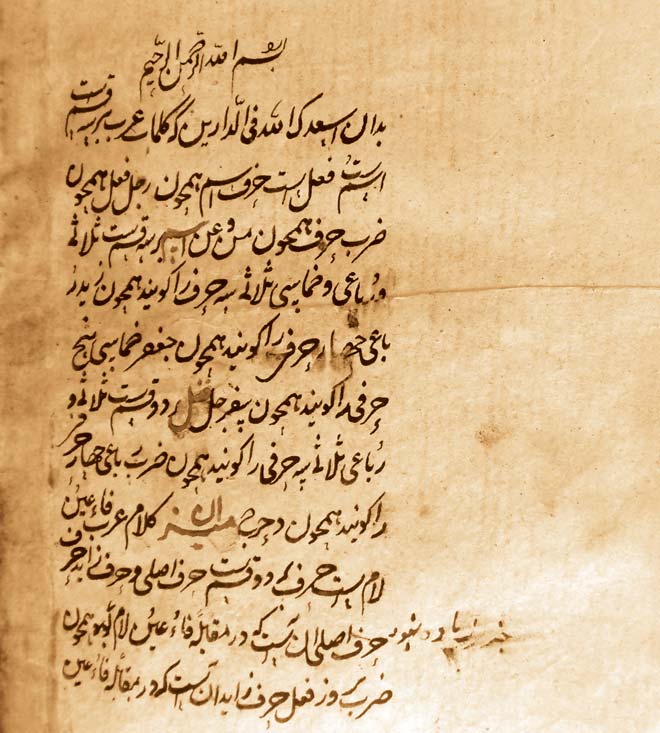 بسم الله الرحمن الرحیم
بدان اسعدک الله فی الدارین که کلمات عرب بر سه قسمست
اسمست فعل است حرف اسم همچون رجل فعل همچون
ضرب حرف همچون من و عن اسم بر سه قسمست ثلاثی
و رباعی و خماسی ثلاثی سه حرفی را کویند همچون زید ر
باعی چهار حرفی را کویند همچون جعفر خماسی پنج
حرفی را کویند همچون سفرجل فعل بر دو قسمست ثلاثی و
رباعی ثلاثی سه حرفی را کویند همچون ضرب رباعی چهار حرفی
را کویند همچون دحرج میزان کلام عرب فاء عین
لام است حرف بر دو قسمست حرف اصلی و حرف زاید حرف
حرف اصلی انست که در مقابله فاء عین لام بود همچون
ضرب بر وزن فعل حرف زاید آنست که در مقابله فاء عین